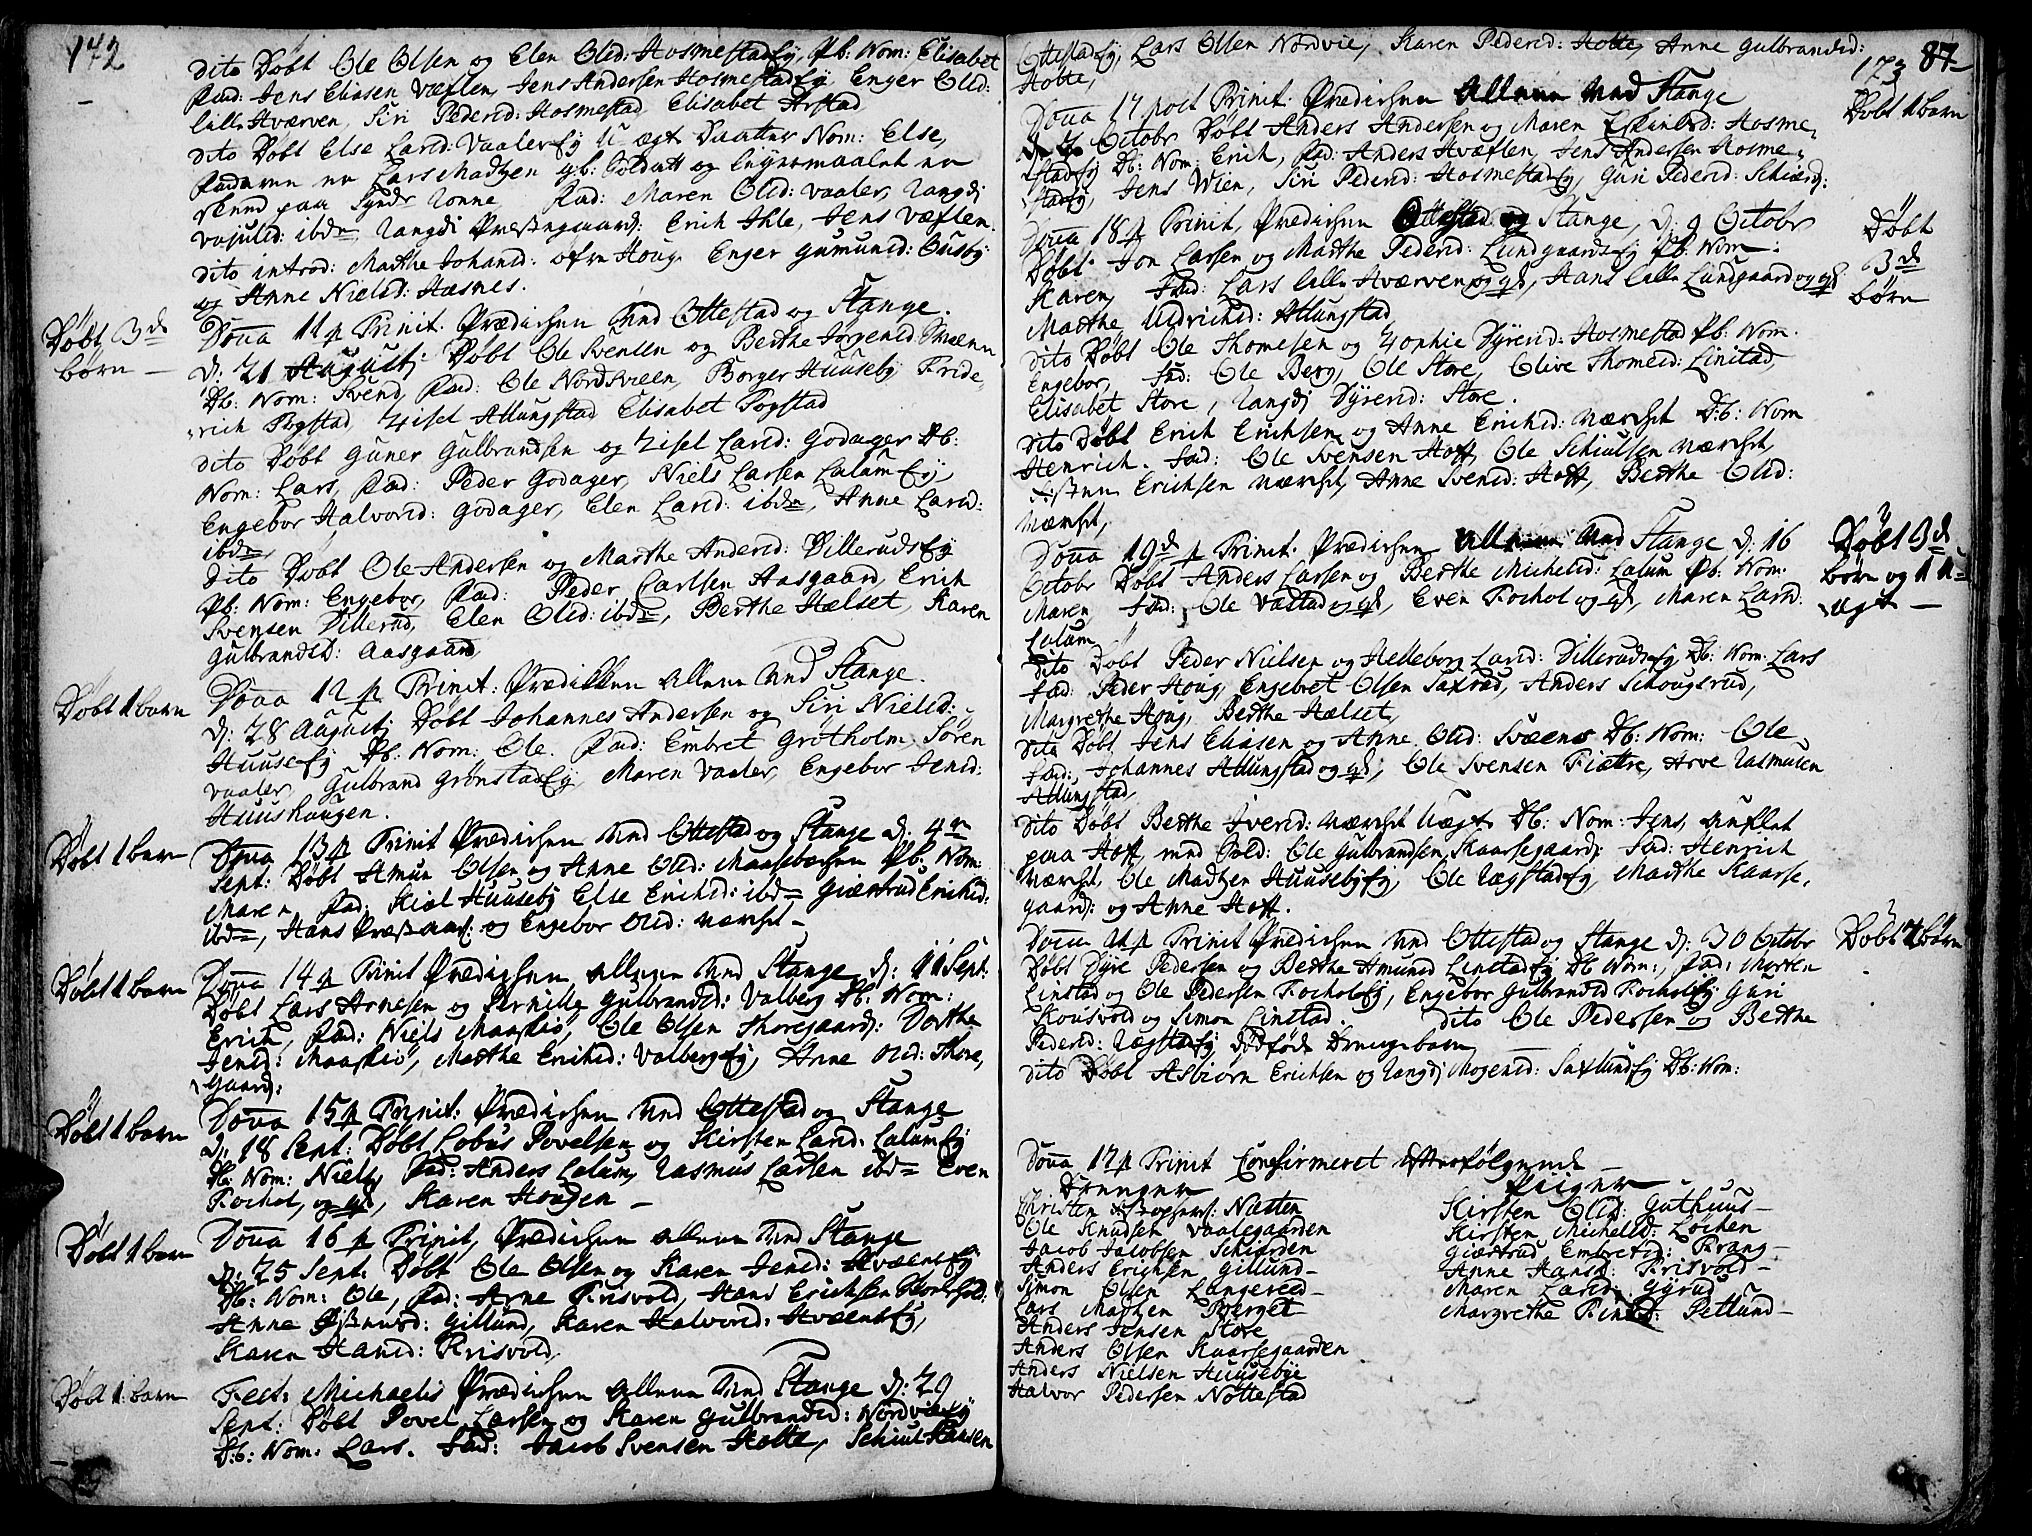 142
dito Döbt Ole Olsen og Elen Olsd: Hosmestad Ej, Pb: Nom: Elisabet
Fad: Jens Eliasen Væflen, Jens Andersen Hosmestad Ej Enger Olsd:
lille Hværven, Siri Pedersd: Hosmestad, Elisabet Arstad
dito Döbt Else Larsd: Vaaler Ej U ægt Daatter Nom: Else,
Faderen er Lars Madtzen gb: Soldatt og Leyermaalet er
skeed paa Fad: Maren Olsd: Vaaler, Rangdi
ibdm, Rangdi Præstegaard: Erich Ihle, Jens Væflen
dito introd: Marthe Johansd: öfre Houg. Enger Gumunsd: Huseby
og Anne Nielsd: Hasnes.
Döbt 3de
börn —
Dona 11 p Trinit: Prædichen ved Ottestad og Stange.
d: 21 August: Döbt Ole Svensen og Berthe Jörgensd: Svæen
Db: Nom: Svend, Fad: Ole Nordsveen, Borger Huuseby Fride-
rich Fogstad, Zisel Atlungstad Elisabet Fogstad
dito Döbt Guner Gulbrandsen og Zisel Larsd: Godager Db:
Nom: Lars, Fad: Peder Godager, Niels Larsen Lalum Ej,
Engebor Halvorsd: Godager, Elen Larsd: ibdm, Anne Larsd:
ibdm,
dito Döbt Ole Andersen og Marthe Andersd: Dillerud Ej
Pb: Nom: Engebor, Fad: Peder Carlsen Aasgaard, Erich
Svensen Dillerud, Elen Olsd: ibdm, Berthe Hælset, Karen
Gulbrandsd: Aasgaard
Döbt 1 barn
Dona 12 p Trinit: Prædichen allene ved Stange.
d: 28 August: Döbt Johannes Andersen og Siri Nielsd:
Huuse Ej Db: Nom: Ole. Fad: Embret Grötholm, Sören
Vaaler, Gulbrand Grönstad Ej, Maren Vaaler, Engebor Jensd:
Huushaugen.
Döbt 1 barn
Dona 13 p Trinit Prædichen ved Ottestad og Stange d: 4de
Sept: Döbt Amun Olsen og Anne Olsd: Maasebachen Pb: Nom:
Maren Fad: Kiol Huuseby Else Erichsd: ibdm Giærtrud Erichsd:
ibdm, Hans og Engebor Olsd: Nærset —
Döbt 1 barn
Dona 14 p Trinit Prædichen allene ved Stange d: 11 Sept:
Döbt Lars Arnesen og Pernille Gulbrandsd: Valberg Db: Nom:
Erich, Fad: Niels Maaseiö, Ole Olsen Thoregaard: Dorthe
Jensd: Maaseiö, Marthe Erichsd: Valberg Ej, Anne Olsd: Thore,
gaard:
Döbt 1 barn
Dona 15 p Trinit: Prædichen ved Ottestad og Stange
d: 18 Sept: Döbt Lobus Povelsen og Kirsten Larsd: Lalum Ej
Db: Nom: Niels, Fad: Anders Lalum, Rasmus Larsen ibdm Even
Fochol, og , Karen Hougen —
Döbt 1 barn
Dona 16 p Trinit, Prædichen allene ved Stange
d: 25 Sept: Döbt Ole Olsen og Karen Jensd: Hvæens Ej
Db: Nom: Ole, Fad: Arne Frisvold, Hans Erichsen
Anne : Gillund, Karen Halvorsd: Hvæens Ej,
Karen Hansd: Frisvold,
Döbt 1 barn
Fest: Michaelis Prædichen allene ved Stange d: 29
Sept: Döbt Povel Larsen og Karen Gulbrandsd: Nordvie Ej
Db: Nom: Lars. Fad: Jacob Svensen Hotte, Schiul Hansen
87
173
Ottestad Ej, Lars Olsen Nordvie, Karen Pedersd: Hotte, Anne Gulbrandsd:
Hotte,
Döbt 1 barn
Dona 17 post Trinit: Prædichen allene ved Stange
d: Octobr Döbt Anders Andersen og Maren : Hosme-
stad Ej Db: Nom: Erich, Fad: Anders Hvæflen, Jens Andersen Hosme-
stad Ej, Jens Wien, Siri Pedersd: Hosmestad Ej, Guri Pedersd:
Döbt
3de
börn
Dona 18 p Trinit, Prædichen Ottestad og Stange, d: 9 Octobr
Döbt Jon Larsen og Marthe Pedersd: Lundgaard Ej Pb: Nom:
Karen, Fad: Lars lille Hværven og , Hans lille Lundgaard og
Marthe Uldrichsd: Atlungstad
dito Döbt Ole Thomesen og Zophie Dyresd: Hosmestad Pb: Nom.
Engebor, Fad: Ole Berg, Ole Store, Olive Thomesd: Linstad,
Elisabet Store, Rangdj Dyresd: Store.
dito Döbt Erich Erichsen og Anne Erichsd: Nærset Db: Nom
Henrich. Fad: Ole Svensen Hoff, Ole Schiulsen Nærset,
Erichsen Nærset, Anne Svensd: Hoff, Berthe Olsd:
Nærset,
Döbt 3de
börn og 1 u-
ægt —
Dona 19de p Trinit: Prædichen allene ved Stange d: 16
Octobr Döbt Anders Larsen og Berthe Michelsd: Lalum Pb: Nom:
Maren Fad: Ole Vastad og , Even Fochol og , Maren Larsd:
Lalum
dito Döbt Peder Nielsen og Helleborg Larsd: Dillerud Ej Db: Nom: Lars
Fad: Peder Houg, Engebret Olsen Saxrud, Anders Schougsrud,
Margrethe Houg, Berthe Hælset,
dito Döbt Jens Eliasen og Anne Olsd: Svæens Db: Nom: Ole
Fad: Johannes Atlungstad og , Ole Svensen Fiætre, Arve Rasmusen
Atlungstad,
dito Döbt Berthe Iversd: Nærset U ægt Db: Nom: Jens, auflet
paa Hoff, med Sold: Ole Gulbrandsen Kaarsegaard: Fad: Henrich
Nærset, Ole Madtzen Huuseby Ej, Ole Rægstad Ej, Marthe Kaarse,
gaard: og Anne Hoff.
Döbt 2 börn
Dona 21 p Trinit Prædichen ved Ottestad og Stange d: 30 Octobr
Döbt Dyre Pedersen og Berthe Amunsd Linstad Ej Db Nom:, Fad: Morten
Linstad og Ole Pedersen Fochol Ej, Engebor Gulbrandsd Fochol Ej Guri
Kousvold og Simon Linstad dito Ole Pedersen og Berthe
Pedersd: Rægstad Ej dödföd Drengebarn
dito Döbt Asbiörn Erichsen og Rangdj Mogensd: Saxlund Ej Db: Nom:
Dona 17 p Trinit Confirmeret efterfölgende —
Drenger
Christen Næsten
Ole Knudsen Vaalegaarden
Jacob Jacobsen Schiærden
Anders Erichsen Gillund —
Simon Olsen Langereed —
Lars Madtzen Berget
Anders Jensen Store
Anders Olsen Kaarsegaarden
Anders Nielsen Huusebye
Halvor Pedersen Nöttestad
Piiger
Kirsten Olsd: Guthuus —
Kirsten Michelsd: Lochen
Giærtrud Embretsd: Frang —
Anne Hansd: Frisvold —
Maren Larsd: Gyrud
Margrethe : Petlund —